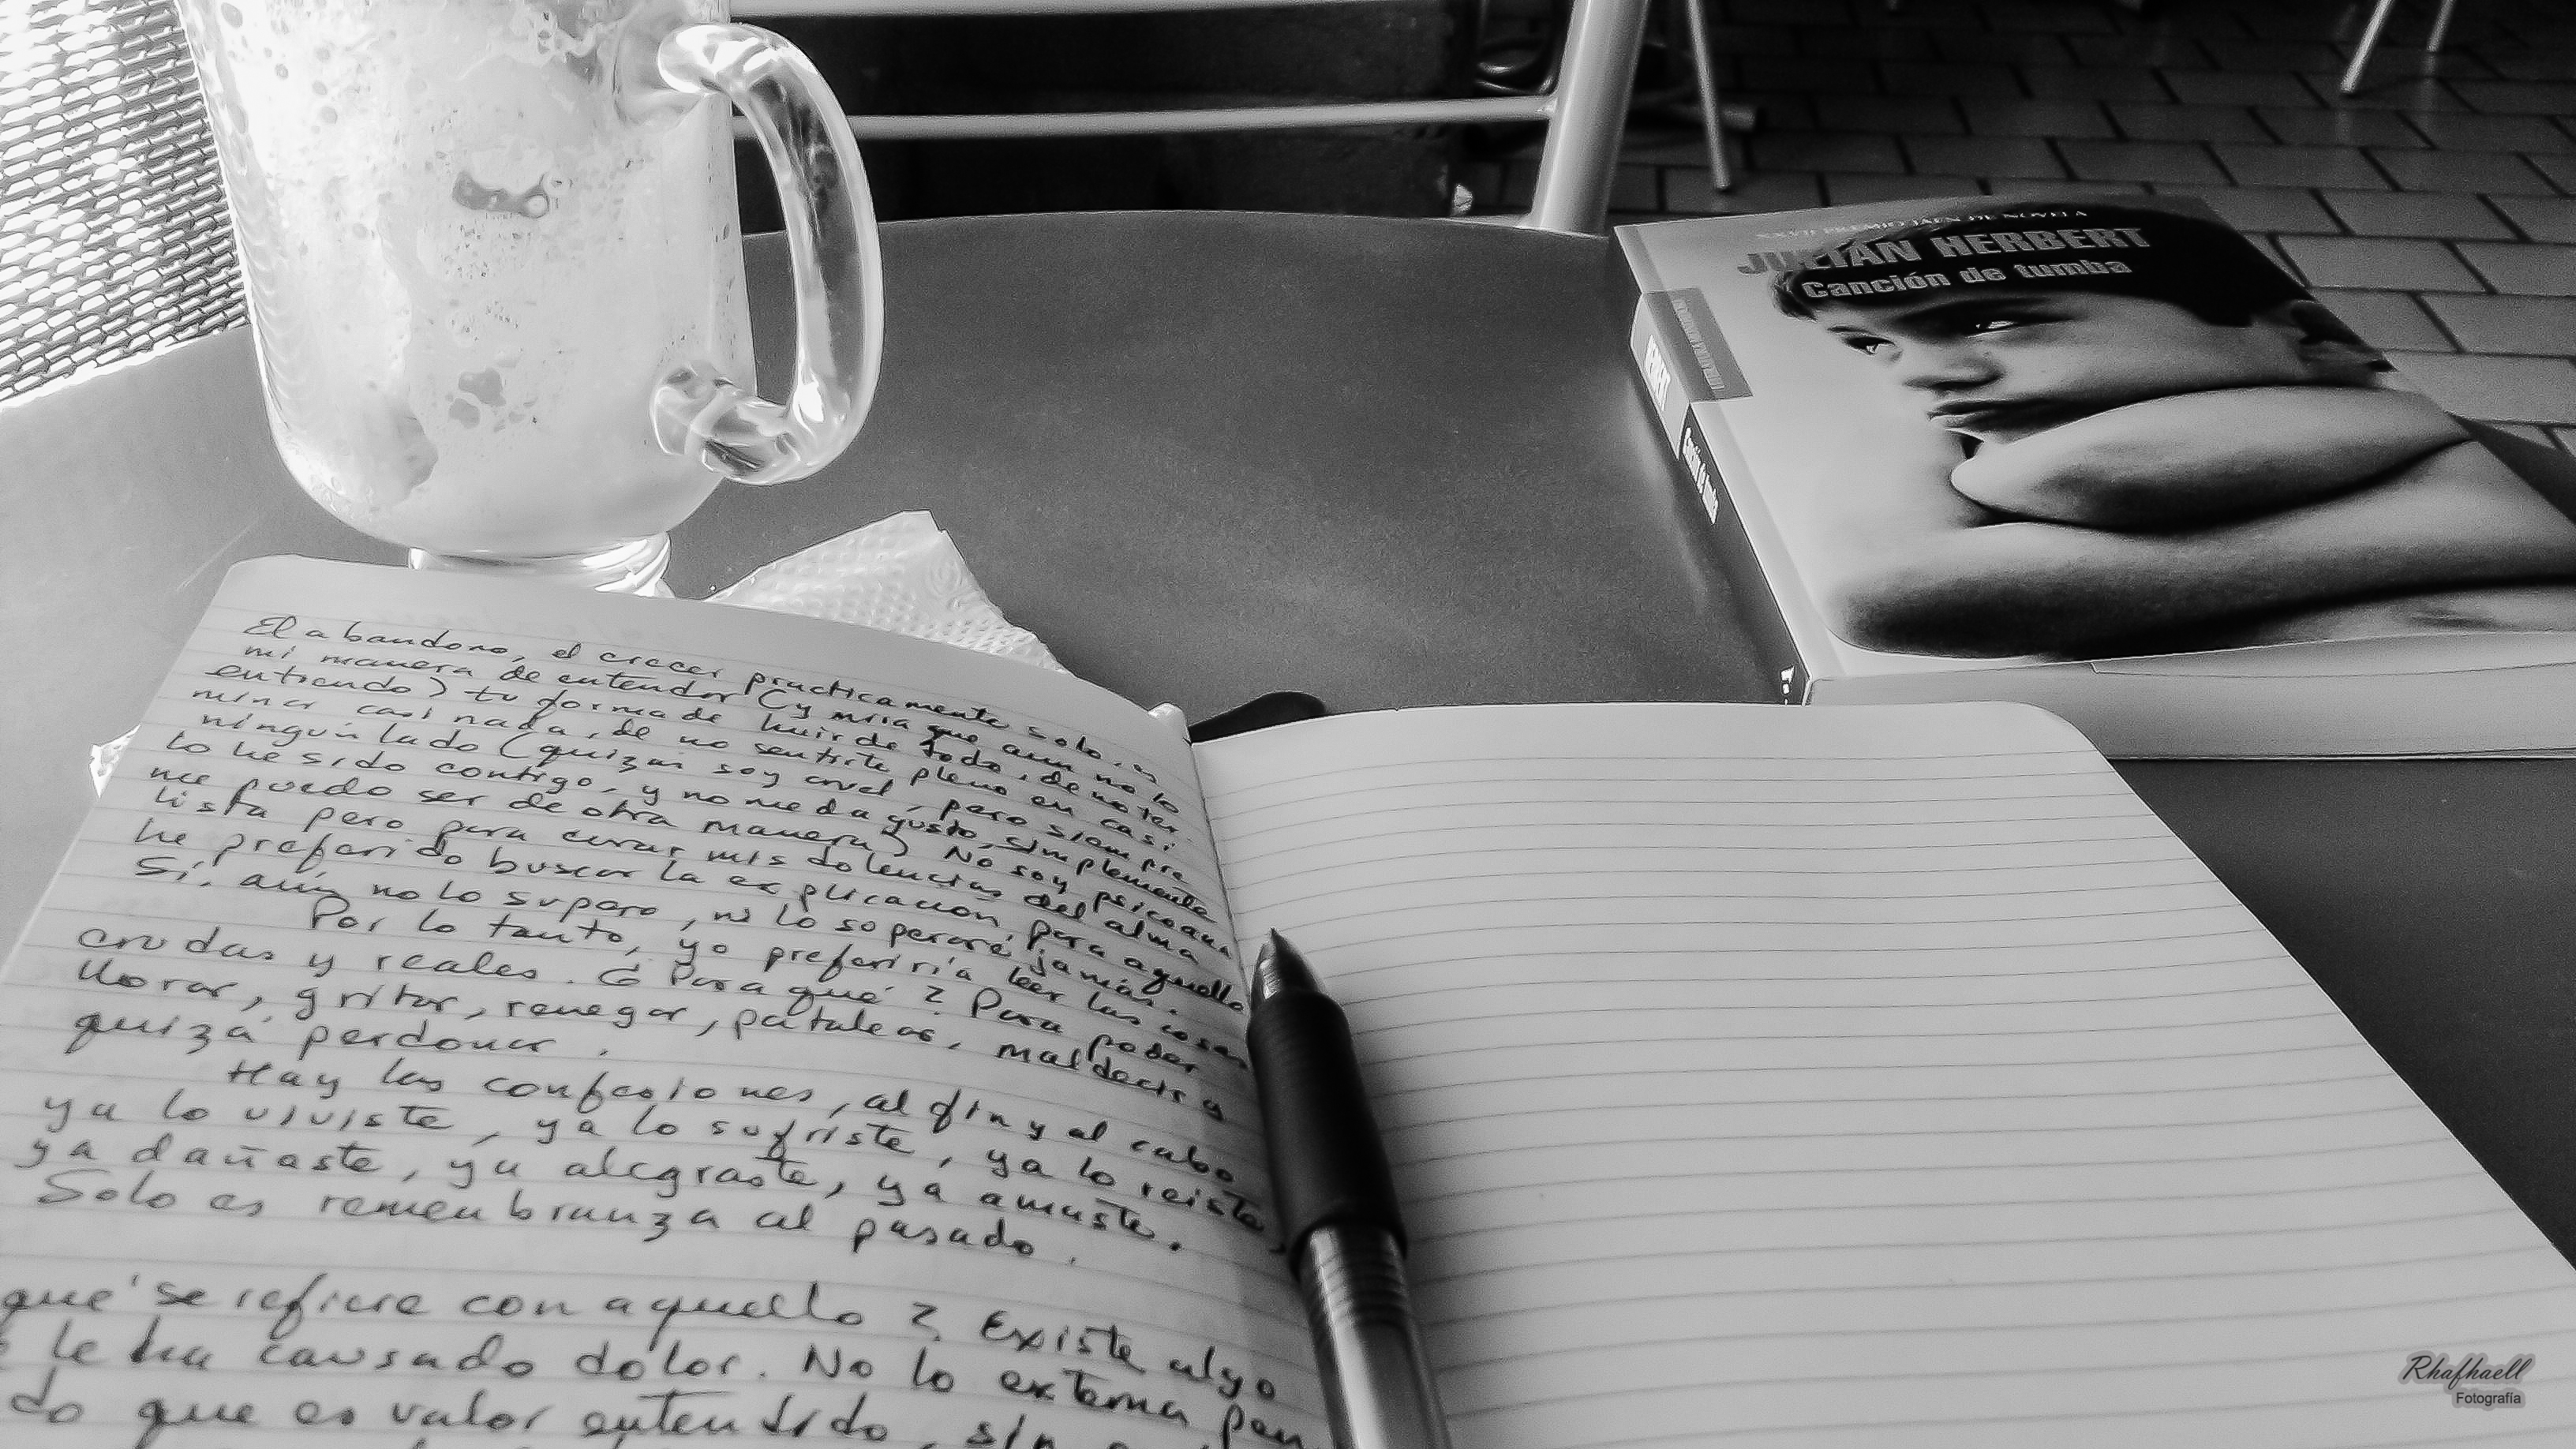 XXVII PREMIO JAÉN DE NOVELA
JULIÁN HERBERT
Canción de tumba
HERBERT
Canción de tumba
El abandono, el crecer practicamente solo, es
mi manera de entender (y mira que aun no lo
entiendo) tu forma de huir de todo, de no ter
minar casi nada, de no sentirte pleno en casi
ningún lado (quizas soy cruel, pero siempre
lo he sido contigo, y no me da gusto, simplemente
me puedo ser de otra manera) No soy psicoana
lista pero para curar mis dolencias del alma
he preferido buscar la explicación, para aquello
Sí, aún no lo supero, ni lo soperaré jamás.
Por lo tanto, yo preferiría leer las cosas
crudas y reales. ¿Para qué? Para poder
llorar, gritar, renegar, patalear, maldecir y
quizá perdonar.
Hay las confesiones, al fin y al cabo
ya lo viviste, ya lo sufriste, ya lo reiste,
ya dañaste, ya alegraste, ya amaste.
Solo es remenbranza al pasado.
qué se refiere con aquello? Existe algo
le ha causado dolor. No lo externa pen
do que es valor entendido, sin
Rhafhaell
Fotografía